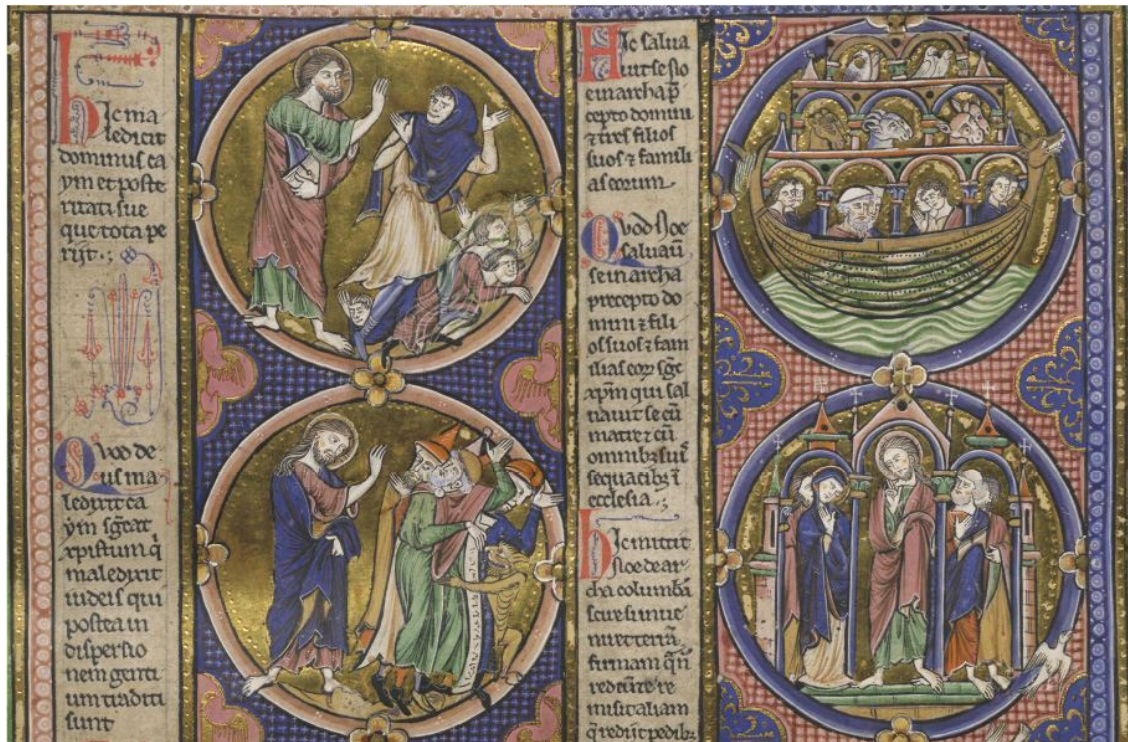 Hic ma
ledicit
dominus ca
ym et poste
ritati sue
que tota pe
rijt.;
Quod de
us ma
ledixit ca
ym sg̅eat
xpistum q̅
maledixit
iudeis qui
postea in
dispersio
nem genti
um traditi
sunt
Hic salua
uit se noe
in archa p̅
cepto domini
⁊ tres filios
suos ⁊ famili
as eorum
Quod Noe
saluauit
se in archa
precepto do
mini ⁊ fili
os suos ⁊ fam
ilias eoꝝ sg̅t
xp̅m qui sal
uauit se cu̅
matre ⁊ cu̅
omnibꝫ suis
sequacibꝫ i̅
ecclesia.;
Hic mittit
Noe de ar
cha columba̅
scire si inue
niret terra̅
firmam
re
misit aliam
q̅ redijt pedibꝫ